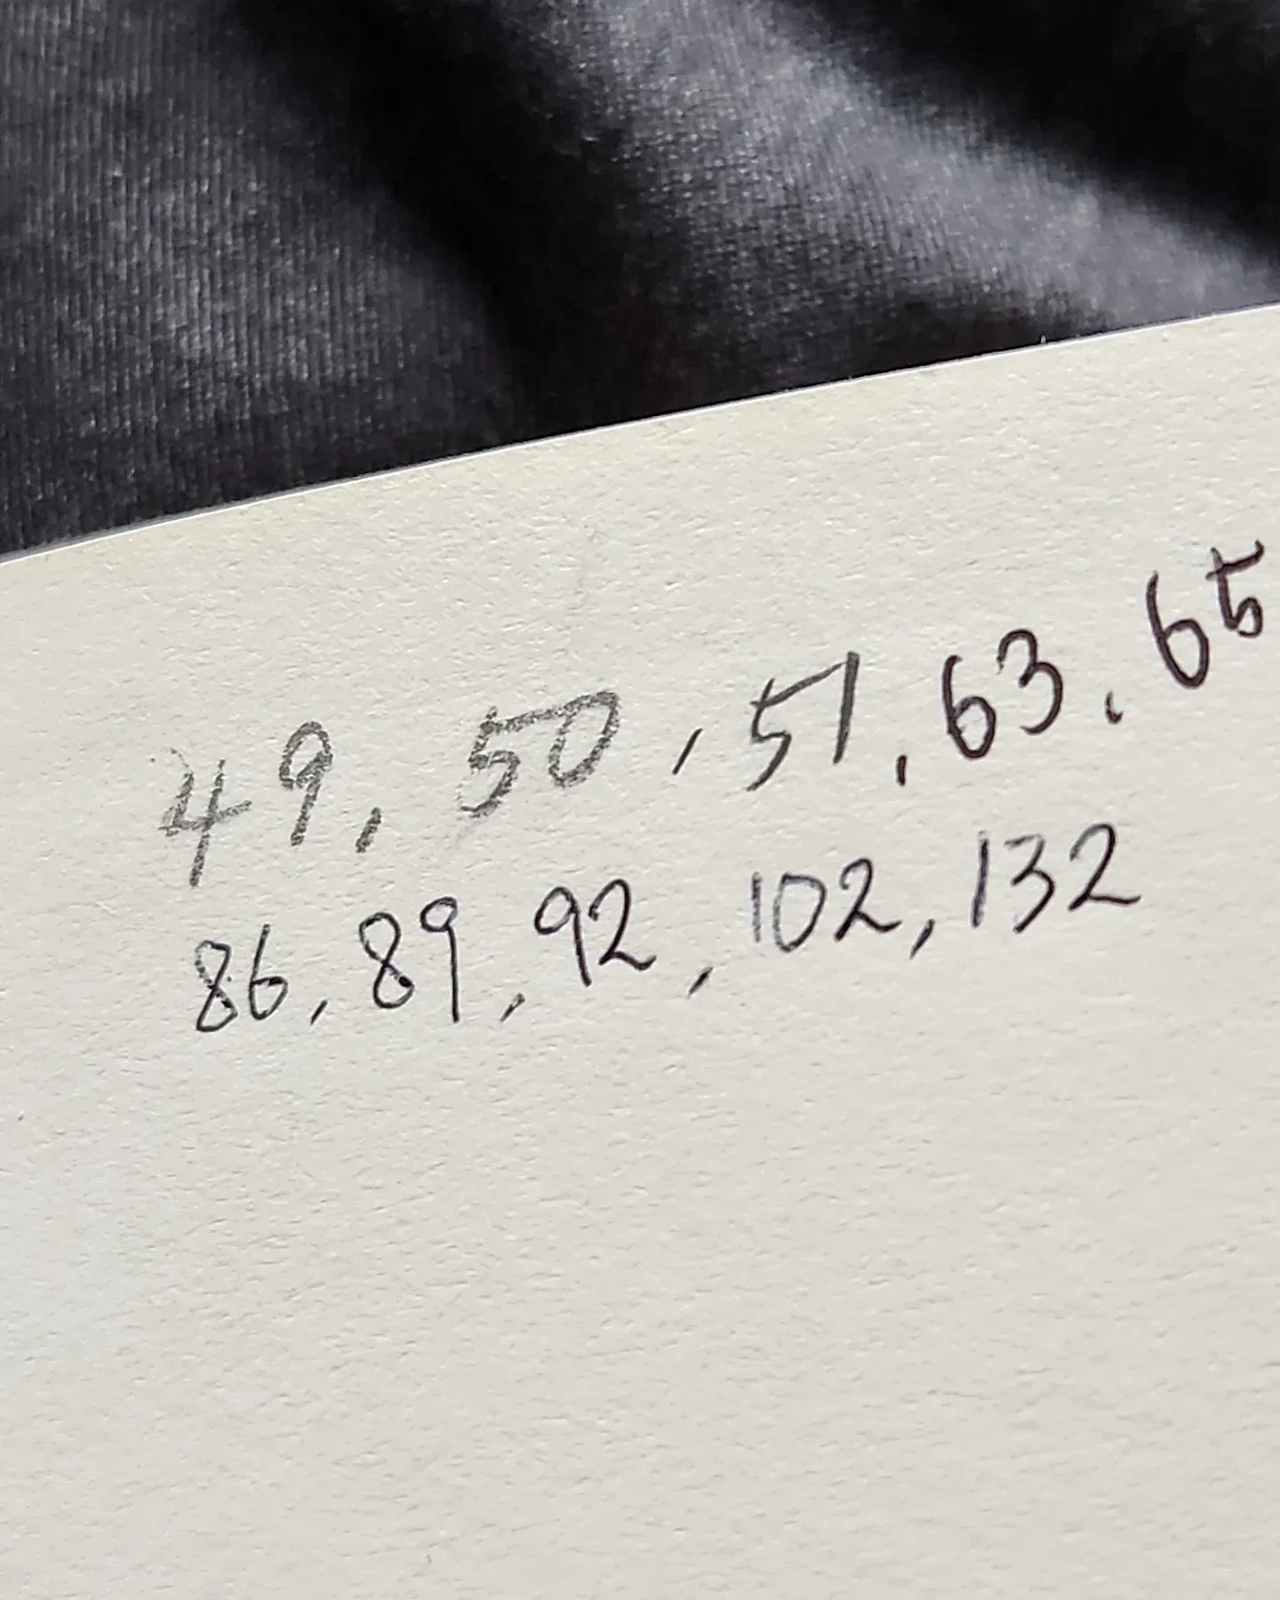 49, 50, 51, 63, 65
86, 89, 92, 102, 132